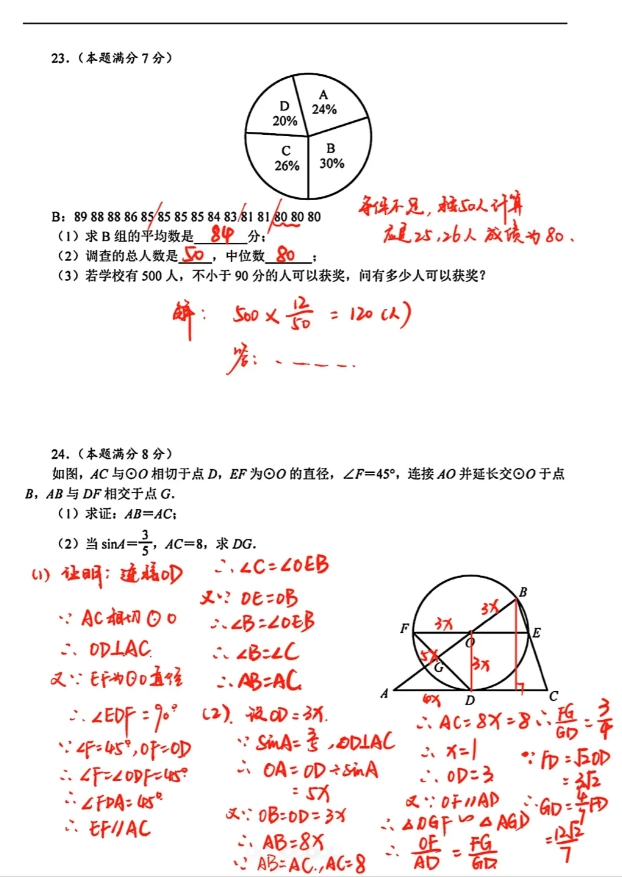 23.（本题满分7分）
D
20%
A
24%
C
26%
B
30%
B：89 88 88 86 85 85 85 85 85 84 83 81 81 80 80 80
条件不足，按50人计算
应是25,26人成绩为80.
（1）求B组的平均数是 84 分；
（2）调查的总人数是 50 ，中位数 80 ；
（3）若学校有500人，不小于90分的人可以获奖，问有多少人可以获奖？
解：500×12/50=120(人)
答：
24.（本题满分8分）
如图，AC与⊙O相切于点D，EF为⊙O的直径，∠F=45°，连接AO并延长交⊙O于点
B，AB与DF相交于点G.
（1）求证：AB=AC；
（2）当sinA=3/5，AC=8，求DG.
(1) 证明：连接OD
∵ AC相切⊙O
∴ OD⊥AC.
又∵ EF为⊙O直径
∴∠EDF=90°
∵∠F=45°,OF=OD
∴∠F=∠ODF=45°
∴∠FDA=45°
∴ EF//AC
∴∠C=∠OEB
又∵ OE=OB
∴∠B=∠OEB
∴∠B=∠C
∴AB=AC.
(2). 设OD=3x.
∵ sinA=3/5,OD⊥AC
∴ OA=OD÷sinA
=5x
又∵ OB=OD=3x
∴ AB=8x
∵ AB=AC,AC=8
B
3x
F
3x
O
E
5x
G
3x
A
4x
D
C
∴AC=8x=8
∴ x=1
∴OD=3
又∵OF//AD
∴△OGF∽△AGD
∴ OF/AD=FG/GD
∴FG/GD=3/4
∵FD=√2OD
=3√2
∴GD=4/7FD
=12√2/7